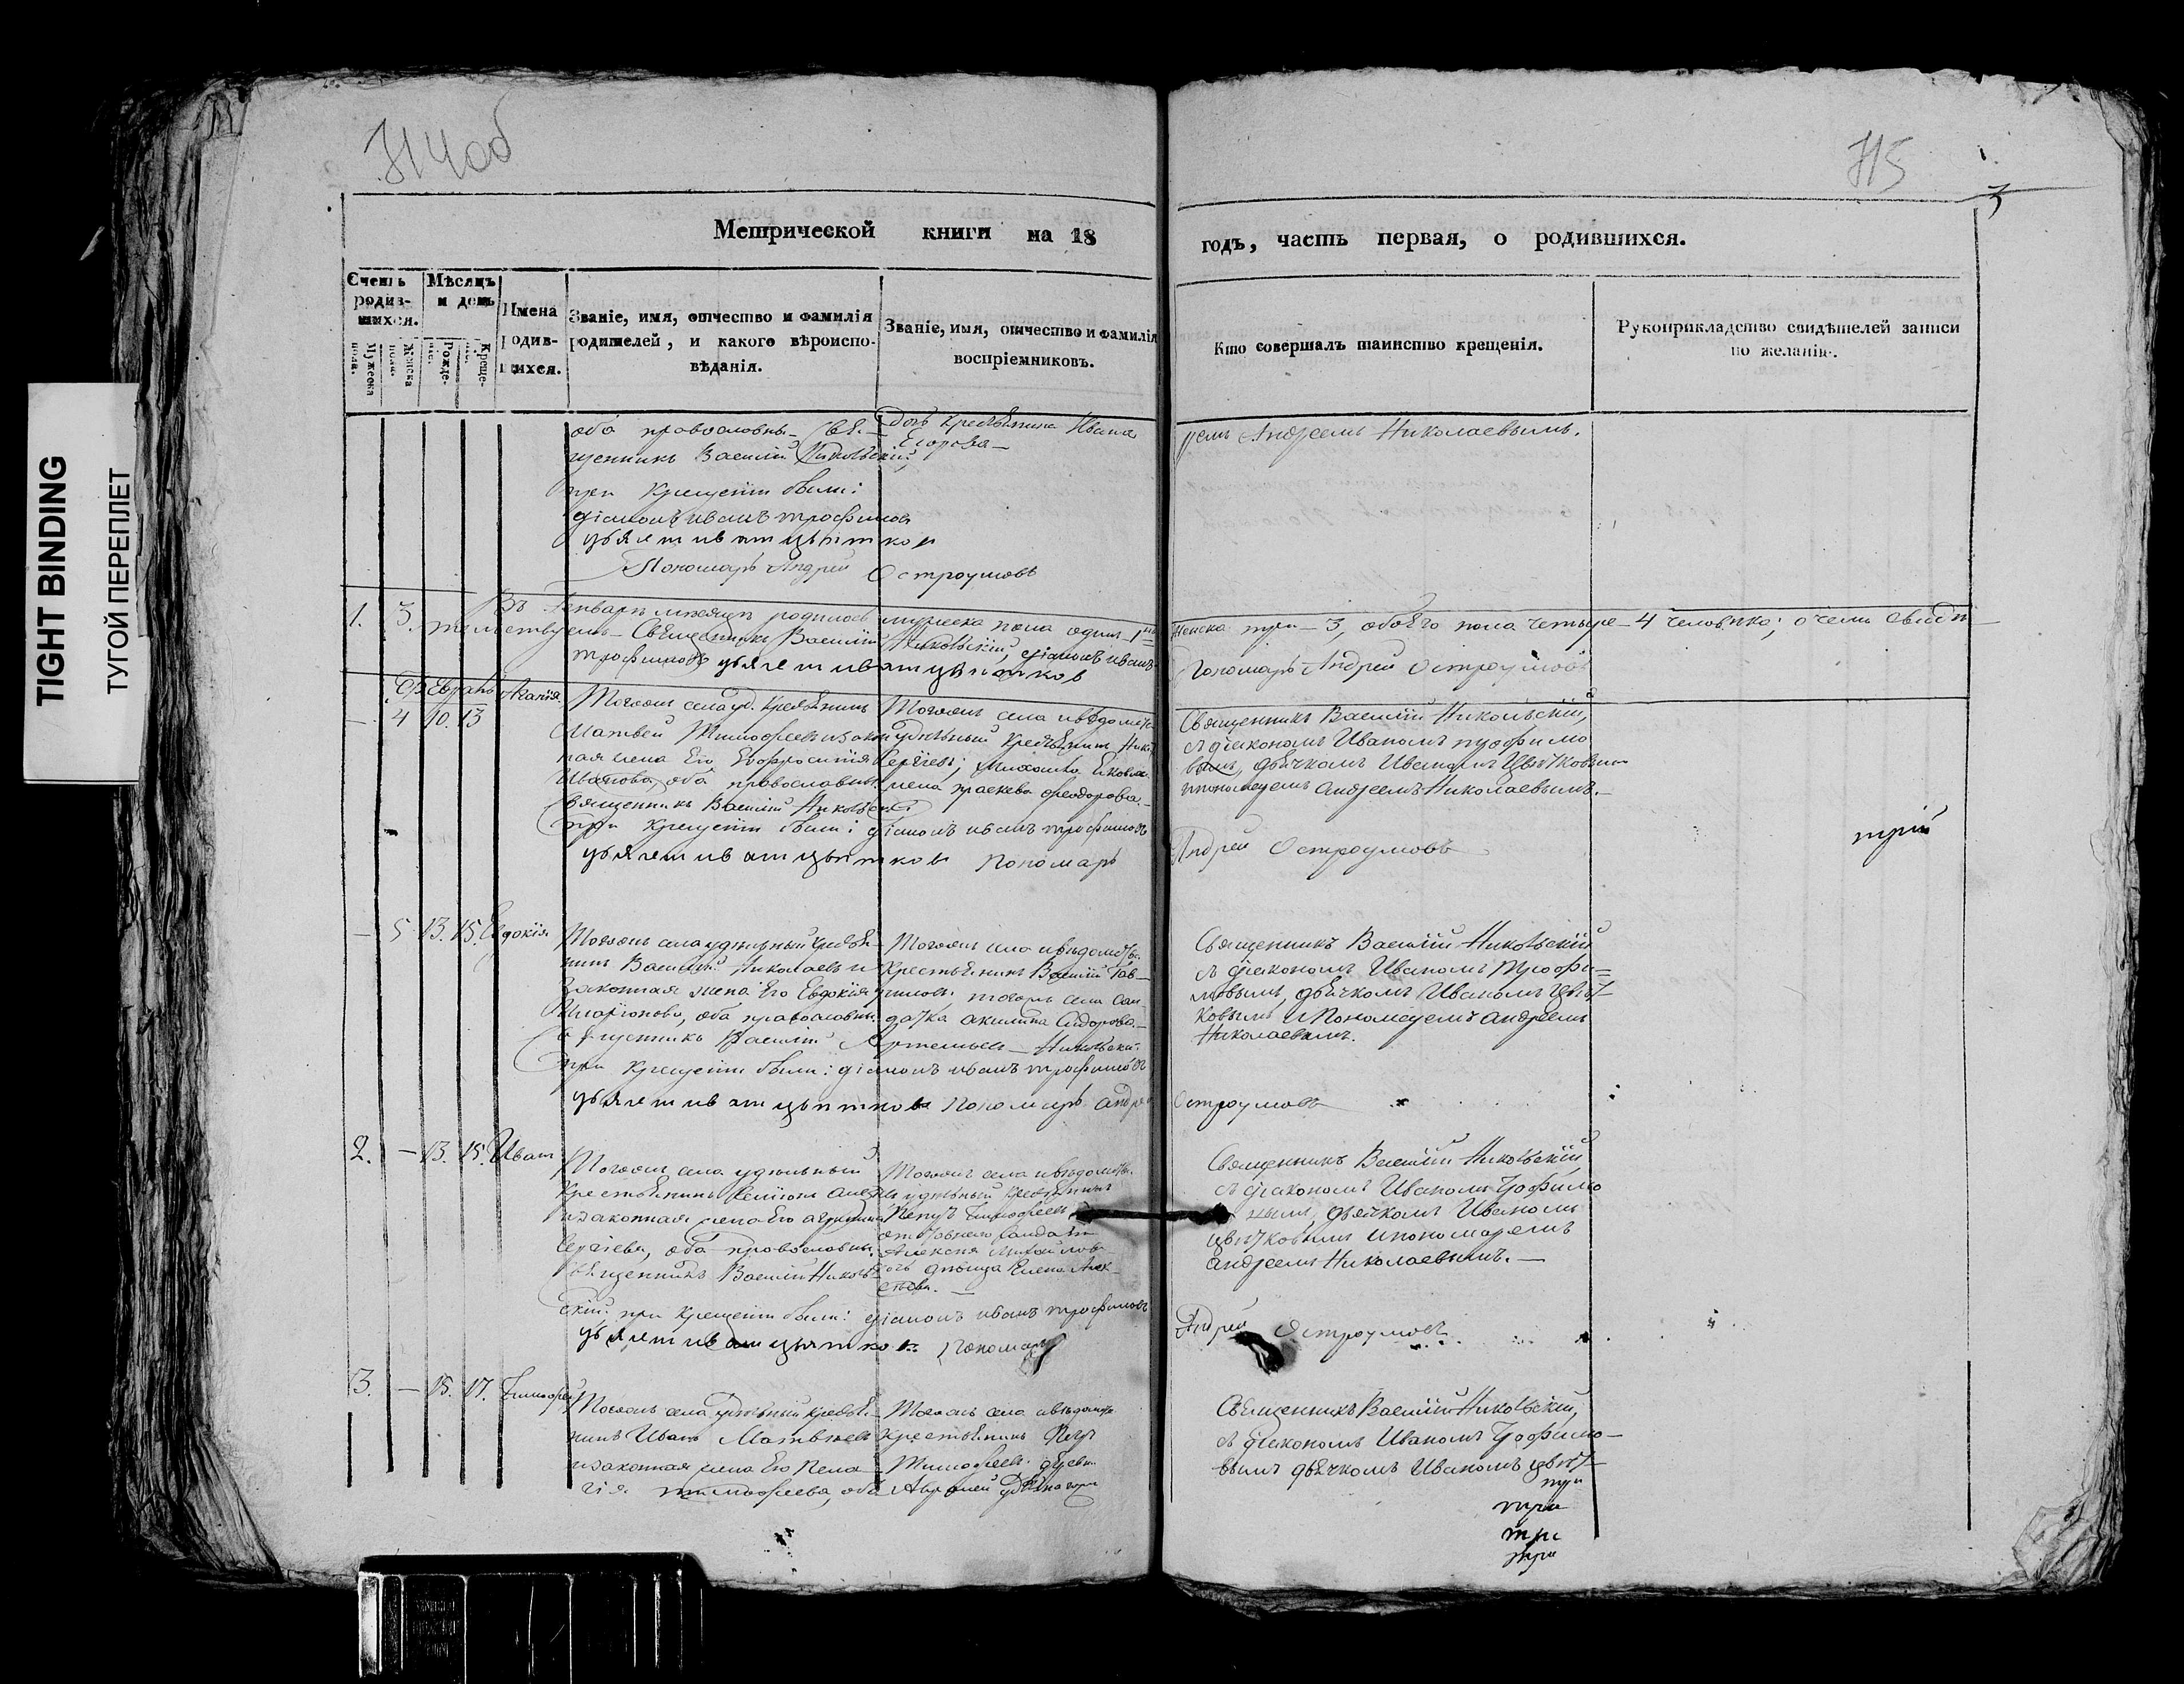 TIGHT BINDING
ТУГОЙ ПЕРЕПЛЕТ
714об
715
Метрической книги на 18
годъ, часть первая, о родившихся.
Счетъ родив-
шихся.
Мужеска
пола.
Женска
пола.
Мѣсяцъ
и день
Рожде-
нія.
Креще-
нія.
Имена
родив-
шихся.
Званіе, имя, отчество и фамилія
родителей, и какого вѣроиспо-
вѣданія.
Званіе, имя, отчество и фамилія
воспріемниковъ.
Кто совершалъ таинство крещенія.
Рукоприкладство свидѣтелей записи
по желанію.
оба православны. Свя-
щенникъ Василій Никольскій,
при крещеніи были:
діаконъ иванъ трофимовъ
дьячекъ иванъ цвѣтковъ
Пономарь Андрей Остроумовъ
дочь крестьянина Ивана
Егорова
remъ Андреемъ Николаевымъ.
1. 3. Въ Генварѣ мѣсяцѣ родилось мужеска пола одинъ 1
женска три 3, обоего пола четыре 4 человѣка; о чемъ свидѣ-
тельствуемъ Священникъ Василій Никольскій, діаконъ иванъ
трофимовъ дьячекъ иванъ цвѣтков
Пономарь Андрей Остроумовъ
Февраль
4 10. 13 Агапія.
Тогожъ села уд. крестьянинъ
Матвей Тимофеевъ и закон-
ная жена Его Евфросинія
Иванова, оба православны.
Священникъ Василій Никольскій
при крещеніи были: діаконъ иванъ трофимовъ
дьячекъ иванъ цвѣтковъ пономарь
Тогожъ села и вѣдомства
удѣльный крестьянинъ
Сергѣевъ; Михаила
жена праскева феодорова.
Священникъ Василій Никольскій,
съ діакономъ Иваномъ трофимо
вымъ, дьячкомъ Иваномъ Цвѣтковымъ
и пономаремъ андреемъ Николаевымъ.
Андрей Остроумовъ
трій
5 13. 15. Евдокія
Тогожъ села удѣльный крестья-
нинъ Василій Николаевъ и
законная жена Его Евдокія
оба православны.
Священникъ Василій Артемьевъ Никольскій.
при крещеніи были: діаконъ иванъ трофимовъ
дьячекъ иванъ цвѣтковъ пономарь андрей
Тогожъ села и вѣдомства
крестьянинъ Василій Гав-
риловъ. тогожъ села сол-
датка акилина Сидорова.
Священникъ Василій Никольскій
съ діакономъ Иваномъ Трофи=
мовымъ, дьячкомъ Иваномъ Цвѣт-
ковымъ и Пономаремъ андреемъ
Николаевымъ.
Остроумовъ
2. 13. 15. Иванъ
Тогожъ села удѣльный
крестьянинъ
и законная жена Его
Сергіева, оба православны.
Священникъ Василій Николь-
скій; при крещеніи были: діаконъ иванъ трофимовъ
дьячекъ иванъ цвѣтковъ. пономарь
Тогожъ села и вѣдомства
удѣльный крестьянинъ
Петръ Тимофеевъ
солдата
Алексѣя Михайлова
дочь дѣвица Елена Алек-
сѣева.
Священникъ Василій Никольскій
съ діакономъ Иваномъ Трофимо
вымъ, дьячкомъ Иваномъ
цвѣтковымъ и пономаремъ
андреемъ Николаевымъ.
Андрей Остроумовъ
3. 15. 17. Тимофей
Тогожъ села удѣльный крестья-
нинъ Иванъ Матвѣевъ
и законная жена Его Пела-
гія тимофеева, оба
Тогожъ села и вѣдомства
крестьянинъ Петръ
Тимофеевъ.
Священникъ Василій Никольскій,
съ діакономъ Иваномъ Трофимо-
вымъ дьячкомъ Иваномъ цвѣт-
при
при
при
при